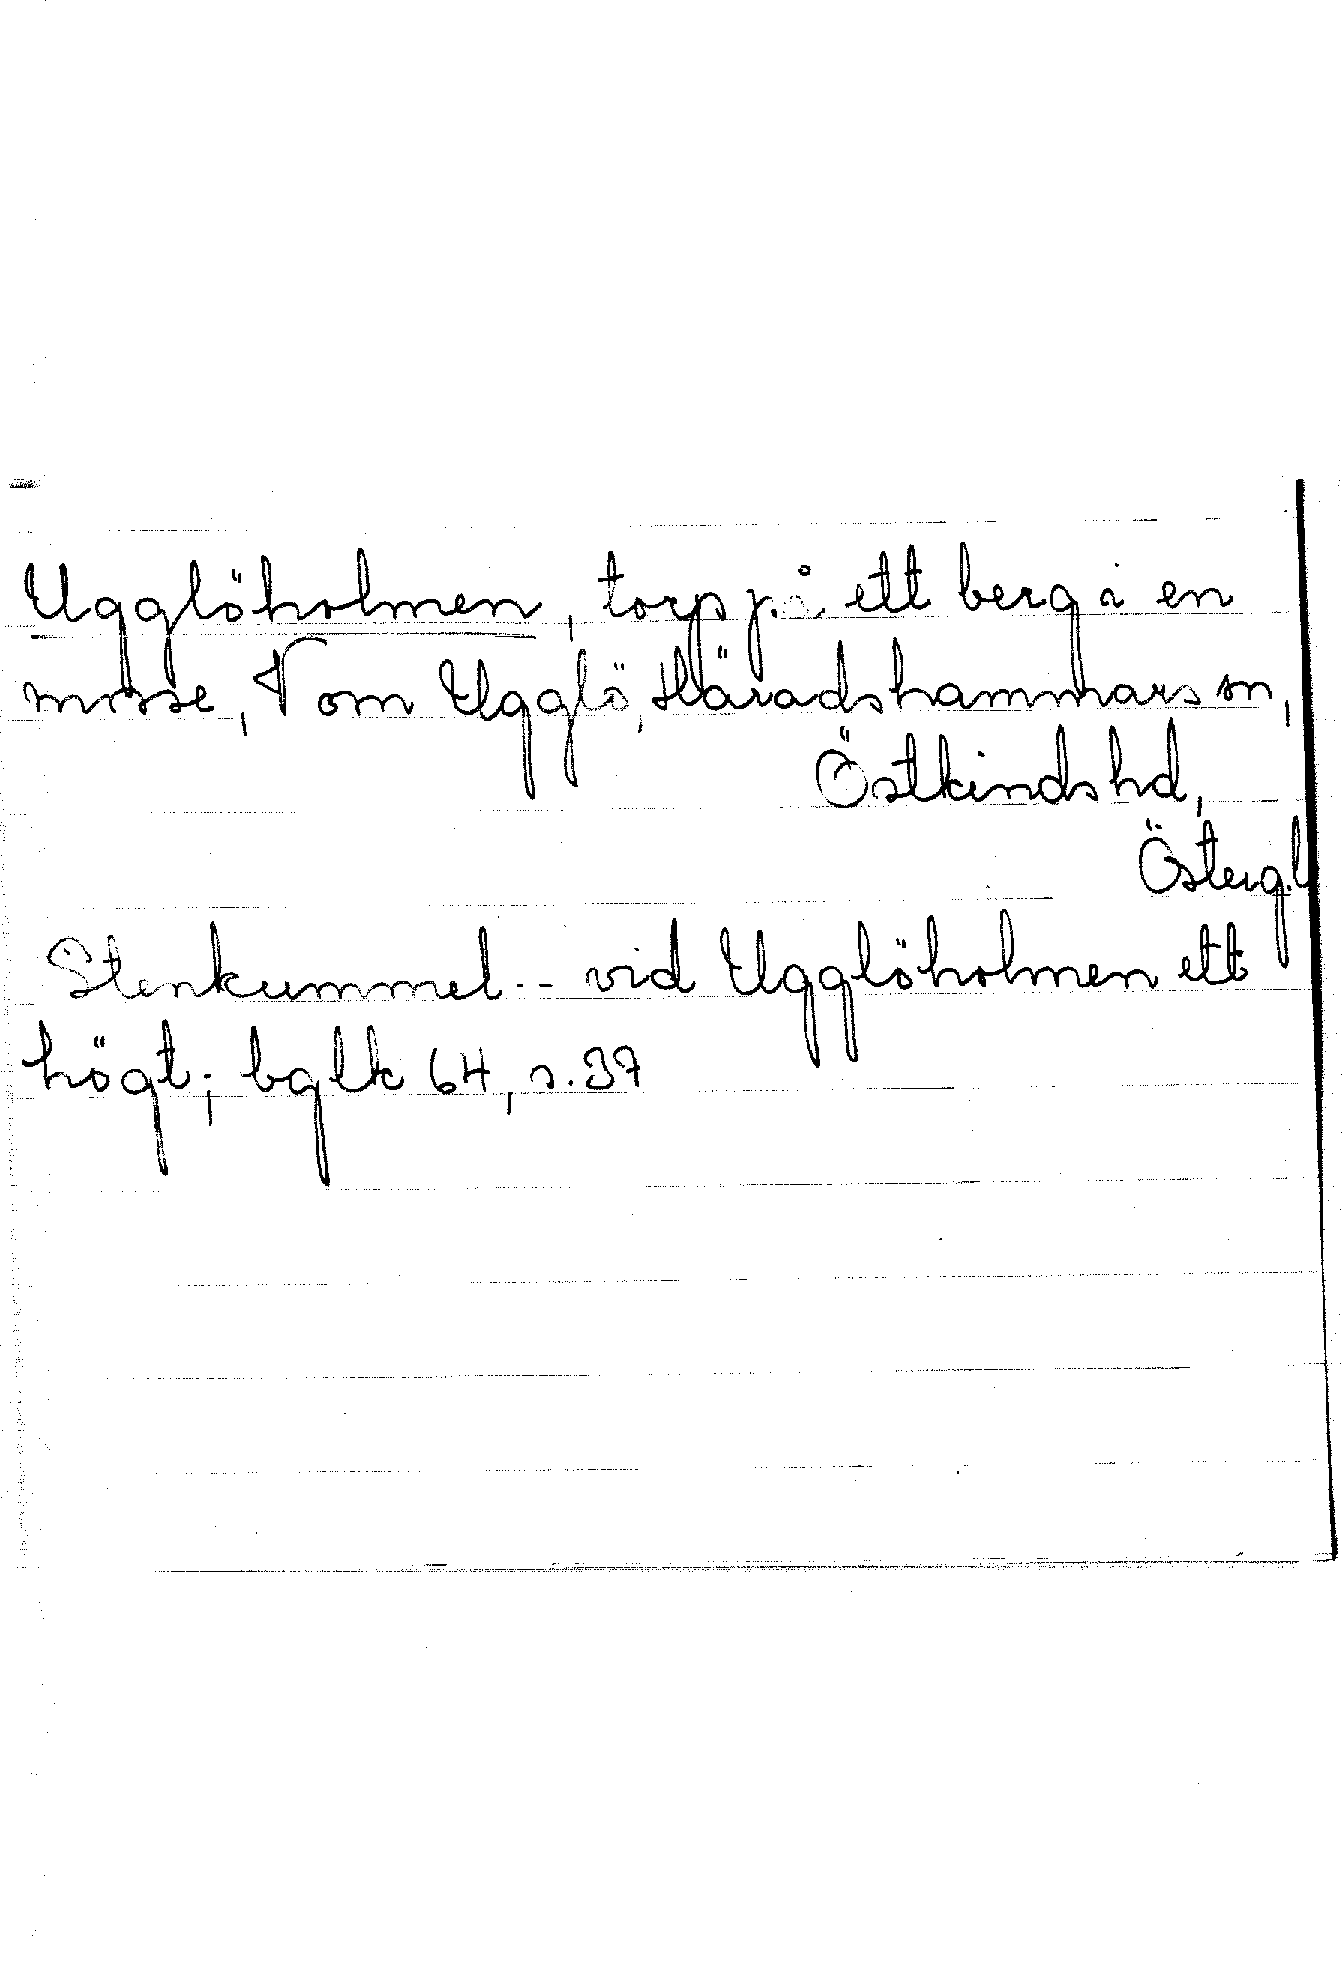 Ugglöholmen, torp på ett berg i en
mosse, V om Ugglö, Häradshammars sn,
Östkinds hd,
Östergl
Stenkummel -- vid Ugglöholmen ett
högt; bglk 64, s. 37